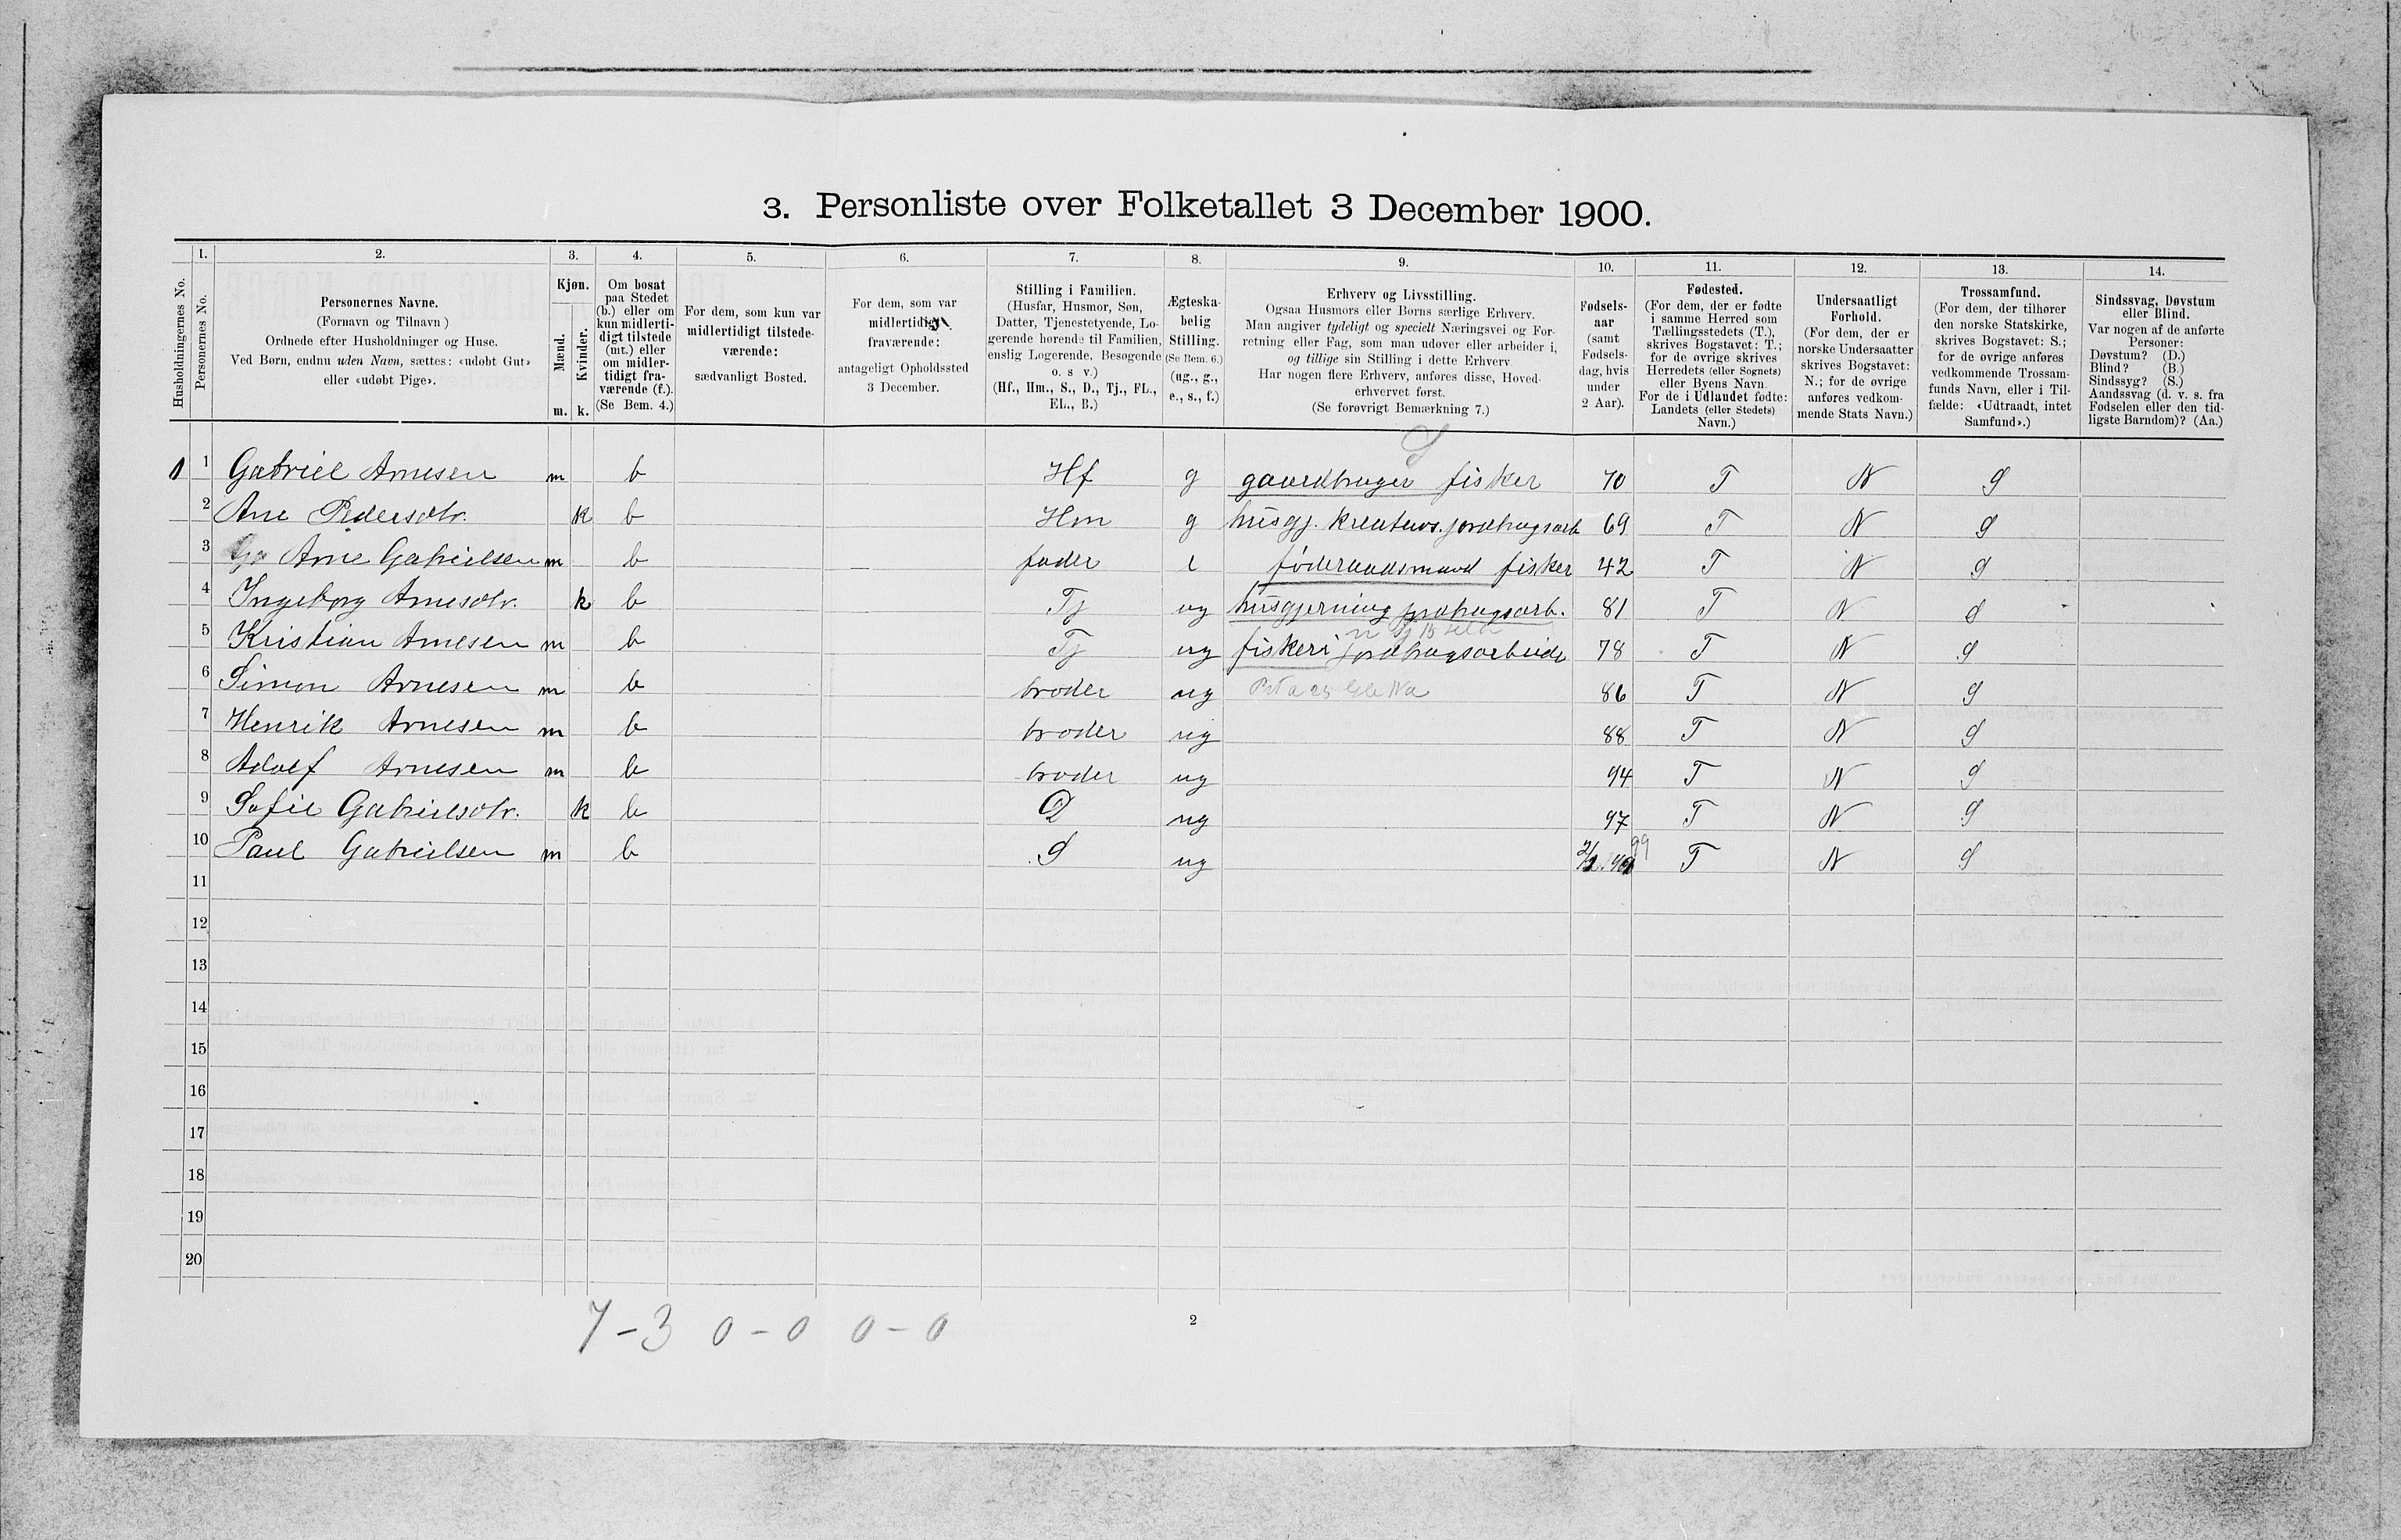 3. Personliste over Folketallet 3 December 1900.
Husholdningernes No.
1.
Personernes No.
2.
Personernes Navne.
(Fornavn og Tilnavn)
Ordnede efter Husholdninger og Huse.
Ved Børn, endnu uden Navn, sættes: «udøbt Gut»
eller «udøbt Pige».
3.
Kjøn.
Mænd.
Kvinder.
m. k.
4.
Om bosat
paa Stedet
(b.) eller om
kun midlerti-
digt tilstede
(mt.) eller
om midler-
tidigt fra-
værende (f.).
(Se Bem. 4.)
5.
For dem, som kun var
midlertidigt tilstede-
værende:
sædvanligt Bosted.
6.
For dem, som var
midlertidigt
fraværende:
antageligt Opholdssted
3 December.
7.
Stilling i Familien.
(Husfar, Husmor, Søn,
Datter, Tjenestetyende, Lo-
gerende hørende til Familien,
enslig Logerende, Besøgende
o. s v.)
(Hf., Hm., S., D., Tj., FL.,
EL., B.)
8.
Ægteska-
belig
Stilling.
(Se Bem. 6.)
(ug., g.,
e., s., f.)
9.
Erhverv og Livsstilling.
Ogsaa Husmors eller Børns særlige Erhverv.
Man angiver tydeligt og specielt Næringsvei og For-
retning eller Fag, som man udøver eller arbeider i,
og tillige sin Stilling i dette Erhverv
Har nogen flere Erhverv, anføres disse, Hoved-
erhvervet først.
(Se forøvrigt Bemærkning 7.)
10.
Fødsels-
aar
(samt
Fødsels-
dag, hvis
under
2 Aar).
11.
Fødested.
(For dem, der er fødte
i samme Herred som
Tællingsstedets (T.),
skrives Bogstavet: T.;
for de øvrige skrives
Herredets (eller Sognets)
eller Byens Navn.
For de i Udlandet fødte:
Landets (eller Stedets)
Navn.)
12.
Undersaatligt
Forhold.
(For dem, der er
norske Undersaatter
skrives Bogstavet:
N.; for de øvrige
anføres vedkom-
mende Stats Navn.)
13.
Trossamfund.
(For dem, der tilhører
den norske Statskirke,
skrives Bogstavet: S.;
for de øvrige anføres
vedkommende Trossam-
funds Navn, eller i Til-
fælde: «Udtraadt, intet
Samfund».)
14.
Sindssvag, Døvstum
eller Blind.
Var nogen af de anførte
Personer:
Døvstum? (D.)
Blind? (B.)
Sindssyg? (S.)
Aandssvag (d. v. s. fra
Fødselen eller den tid-
ligste Barndom)? (Aa.)
S
1 1 Gabriel Arnesen m b Hf g gaardbruger fisker 70 T N S
2 Ane Pedersdtr. k b Hm g husgj. kreaturs. jordbrugsarb 69 T N S
3 Arne Gabrielsen m b — fader e føderaadsmand fisker 42 T N S
4 Ingeborg Arnesdtr. k b Tj ug husgjerning jordbrugsarb. 81 T N S
5 Kristian Arnesen m b Tj ug fiskeri jordbrugsarbeide 78 T N S
6 Simon Arnesen m b broder ug 86 T N S
7 Henrik Arnesen m b broder ug 88 T N S
8 Adolf Arnesen m b broder ug 94 T N S
9 Sofie Gabrielsdtr. k b D ug 97 T N S
10 Paul Gabrielsen m b S ug 99 T N S
11
12
13
14
15
16
17
18
19
20
7-3 0-0 0-0
2